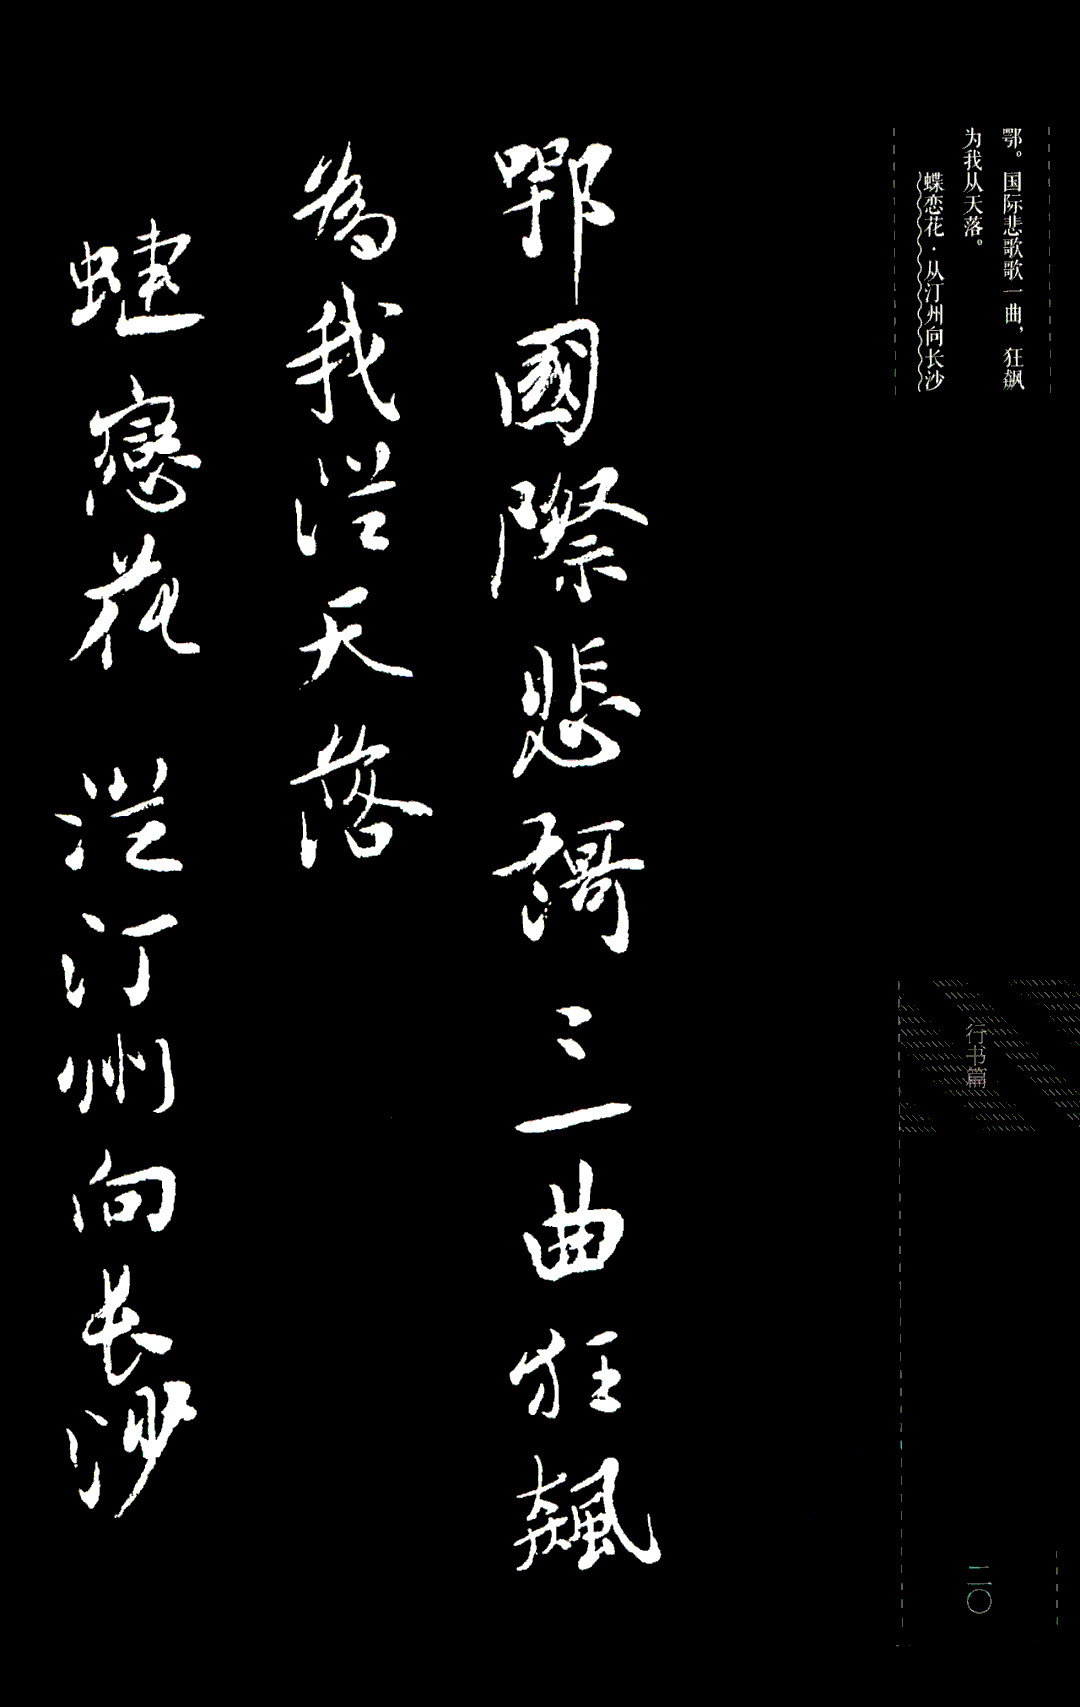 鄂。国际悲歌歌一曲，狂飙
为我从天落。
蝶恋花·从汀州向长沙
鄂國際悲謌〻一曲狂飆
為我從天落
蝶戀花 從汀州向長沙
行书篇
二〇